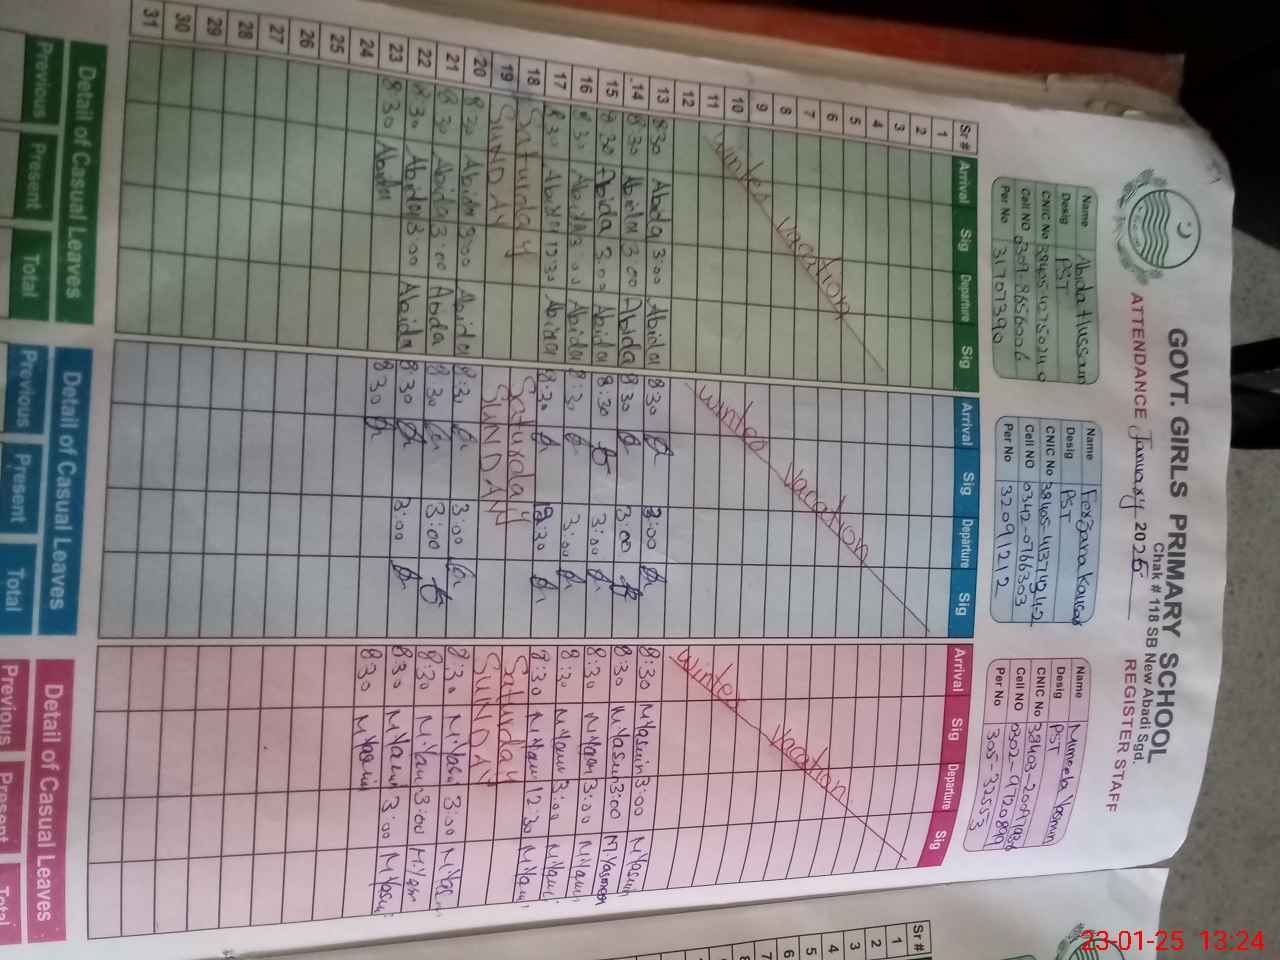 GOVT. GIRLS PRIMARY SCHOOL
Chak # 118 SB New Abadi Sgd.
ATTENDANCE January 2025 REGISTER STAFF
Name Abida Hussain
Desig PST
CNIC No
Cell NO
Per No 31707390
Name Farzana Kausar
Desig PST
CNIC No
Cell NO 0342-0766303
Per No 32091212
Name Yasmin
Desig PST
CNIC No
Cell NO
Per No 305-32553
Sr # Arrival Sig Departure Sig Arrival Sig Departure Sig Arrival Sig Departure Sig
1
2
3
4
5
6
7
8
9
10
11
12
winter vacation winter vacation winter vacation
13 8:30 Abida 3:00 Abida 8:30 3:00 8:30 M.Yasmin 3:00 M.Yasmin
14 8:30 Abida 3:00 Abida 8:30 3:00 8:30 M.Yasmin 3:00 M.Yasmin
15 8:30 Abida 3:00 Abida 8:30 3:00 8:30 M.Yasmin 3:00 M.Yasmin
16 8:30 Abida 3:00 Abida 8:30 3:00 8:30 M.Yasmin 3:00 M.Yasmin
17 8:30 Abida 12:30 Abida 8:30 8:30 M.Yasmin 12:30 M.Yasmin
18 Saturday Saturday Saturday
19 SUNDAY SUNDAY SUNDAY
20 8:30 Abida 3:00 Abida 8:30 3:00 8:30 M.Yasmin 3:00 M.Yasmin
21 8:30 Abida 3:00 Abida 8:30 3:00 8:30 M.Yasmin 3:00 M.Yasmin
22 8:30 Abida 3:00 Abida 8:30 3:00 8:30 M.Yasmin 3:00 M.Yasmin
23 8:30 Abida 8:30 8:30 M.Yasmin
24
25
26
27
28
29
30
31
Detail of Casual Leaves Detail of Casual Leaves Detail of Casual Leaves
Previous Present Total Previous Present Total Previous Present Total
Sr #
1
2
3
4
5
6
7
23-01-25 13:24